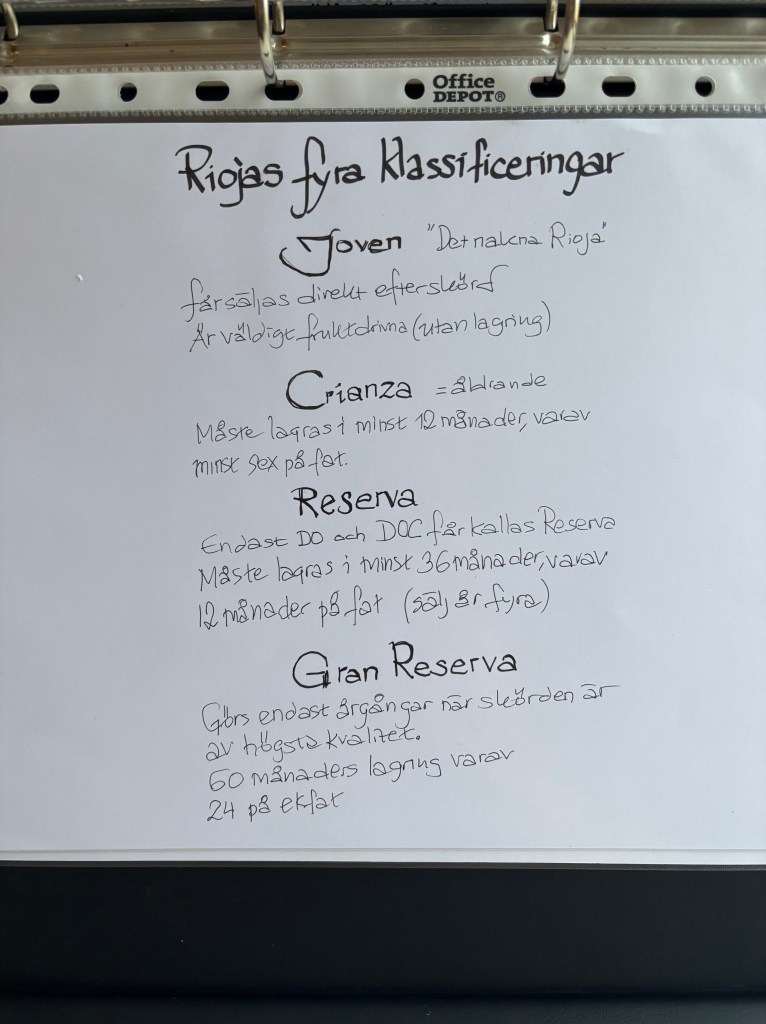 Office
DEPOT®
Riojas fyra klassificeringar
Joven "Det nakna Rioja"
får säljas direkt efter skörd
Är väldigt fruktdrivna (utan lagring)
Crianza = åldrande
Måste lagras i minst 12 månader, varav
minst sex på fat.
Reserva
Endast DO och DOC får kallas Reserva
Måste lagras i minst 36 månader, varav
12 månader på fat (sälj år fyra)
Gran Reserva
Görs endast årgångar när skörden är
av högsta kvalitet.
60 månaders lagring varav
24 på ekfat